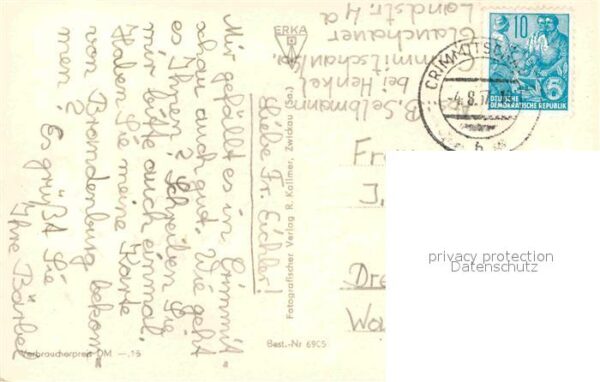 Liebe Fr. Eichler!
Mir gefällt es in Crimmit-
schau auch gut. Wie geht
es Ihnen? Schreiben Sie
mir bitte auch einmal.
Haben Sie meine Karte
von Brandenburg bekom-
men? Es grüßt Sie
Ihre Bärbel
Verbraucherpreis DM —.15
ERKA
Fotografischer Verlag R. Kallmer, Zwickau (Sa.)
Best.-Nr 6905
Abs.: B. Selbmann
bei Henkel
Glauchauer
Landstr. 4a
10
DEUTSCHE
DEMOKRATISCHE REPUBLIK
5
CRIMMITSCHAU
-4.8.
b
Fr
J.
Dre
Wa
privacy protection
Datenschutz